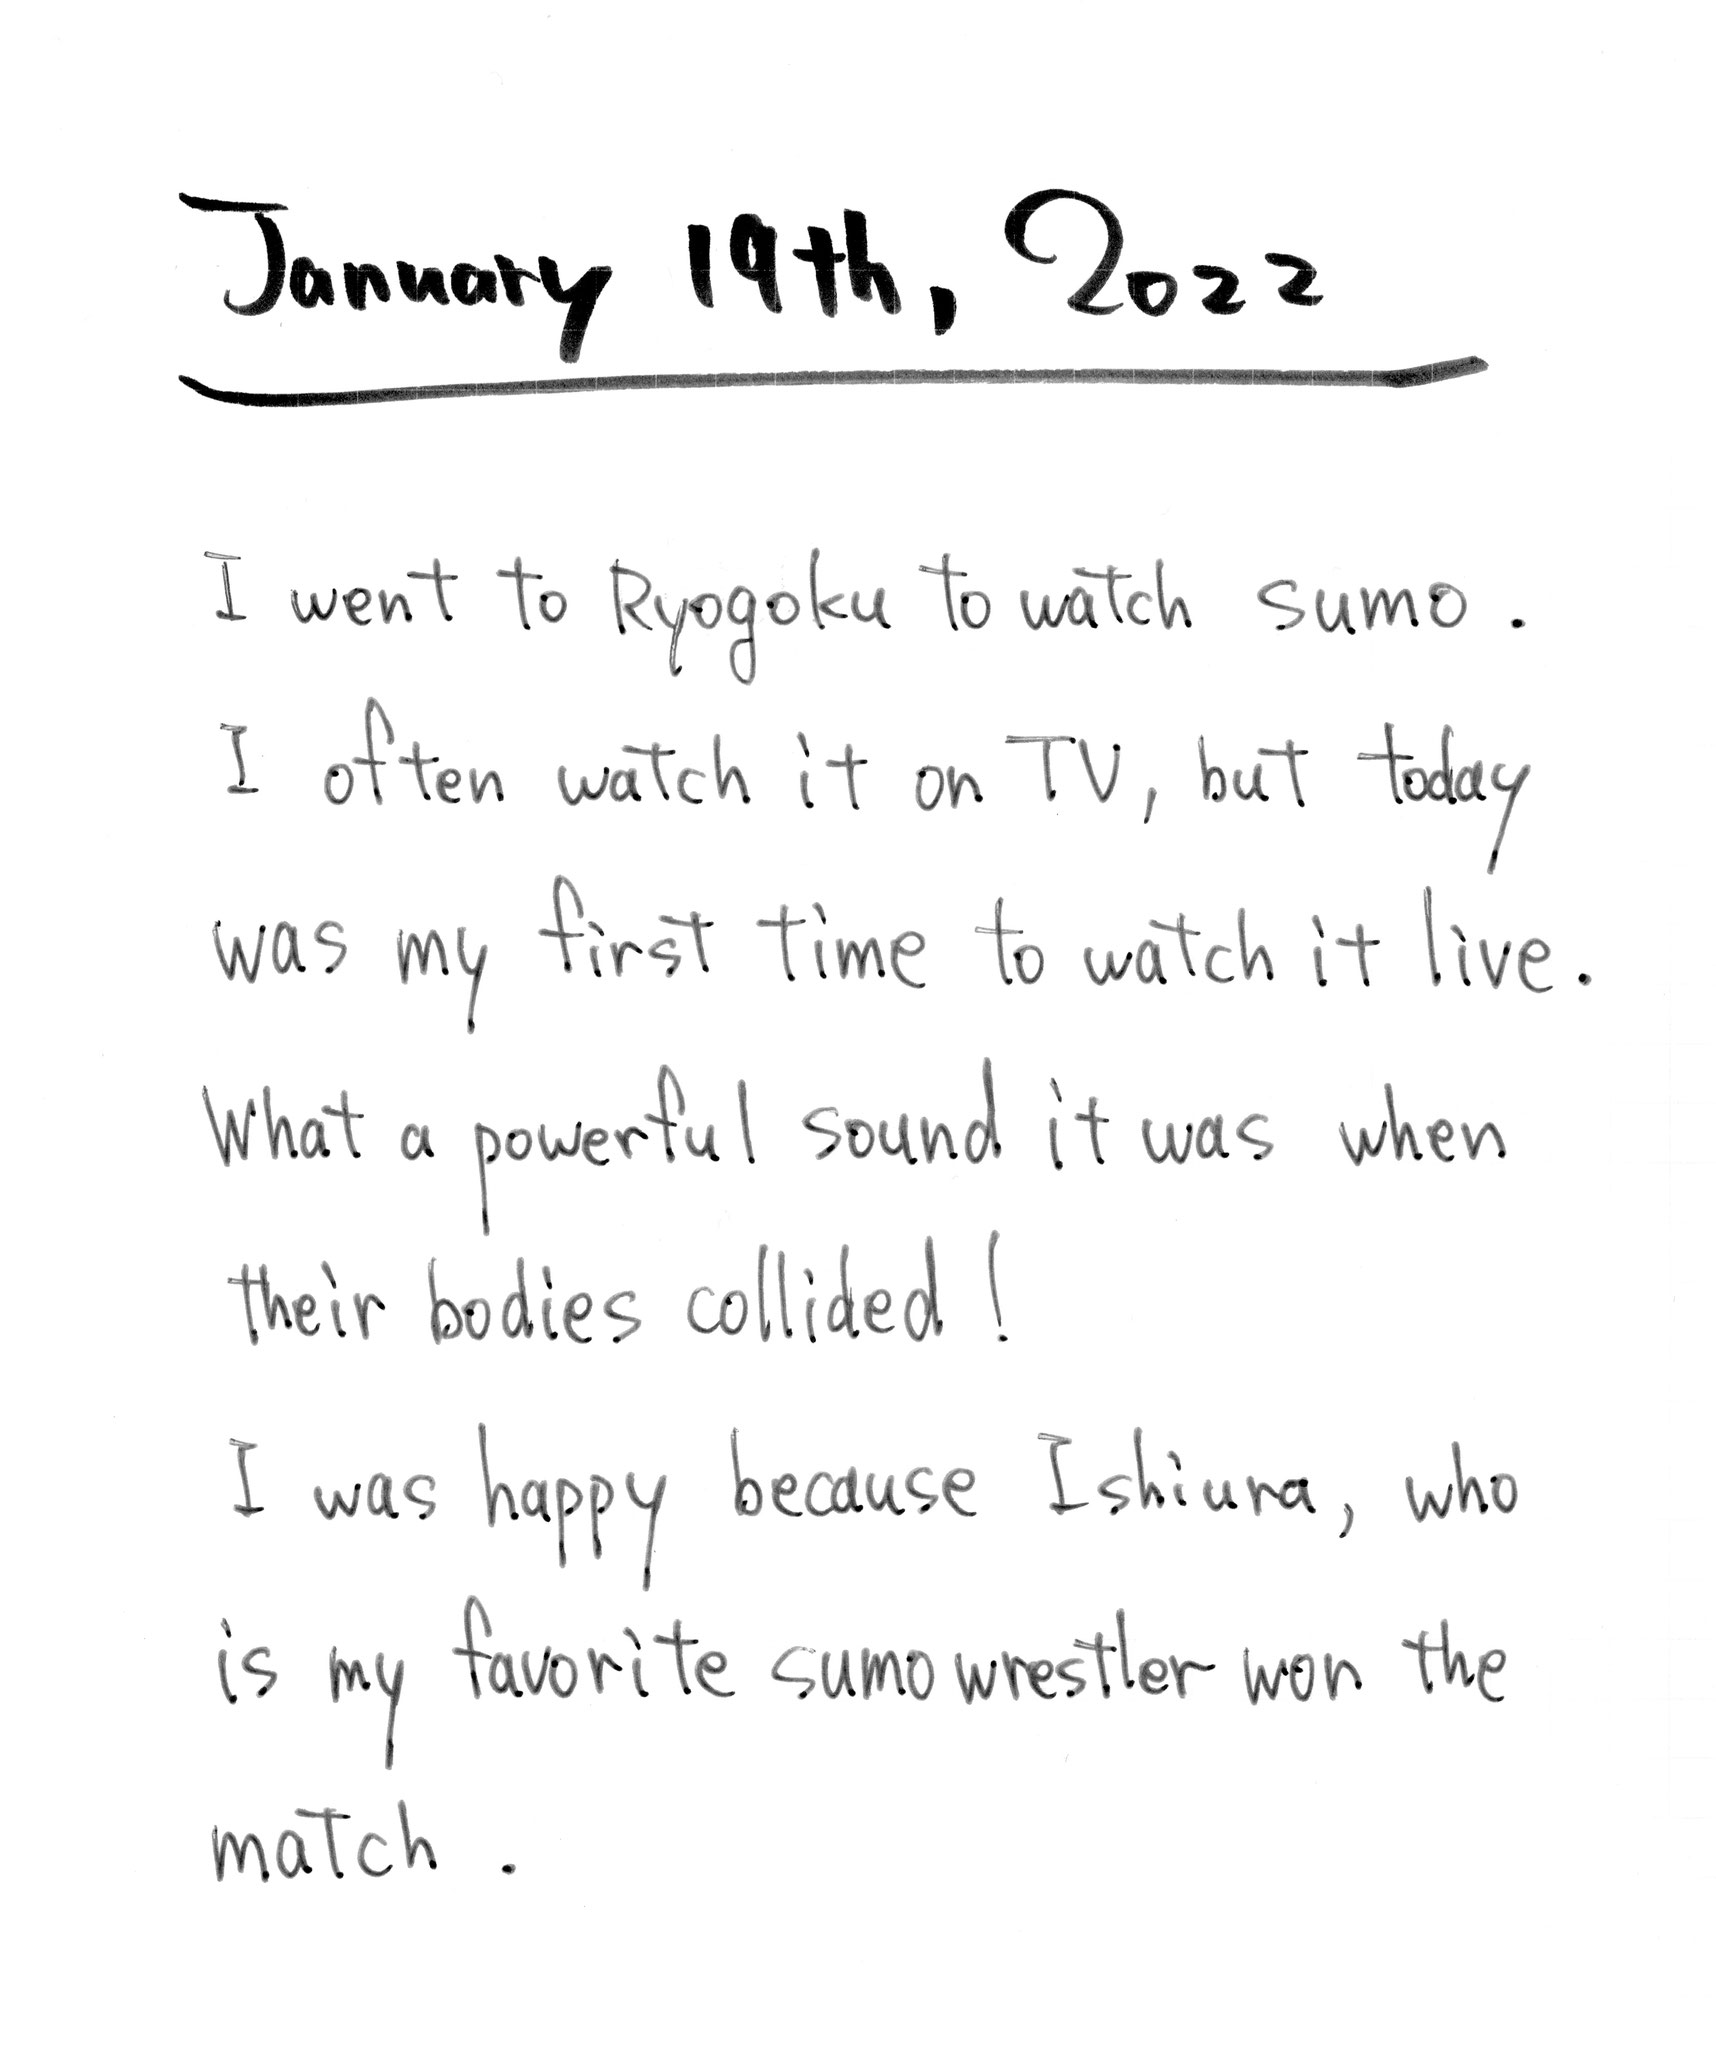 January 19th, 2022
I went to Ryogoku to watch sumo.
I often watch it on TV, but today
was my first time to watch it live.
What a powerful sound it was when
their bodies collided!
I was happy because Ishiura, who
is my favorite sumo wrestler won the
match.